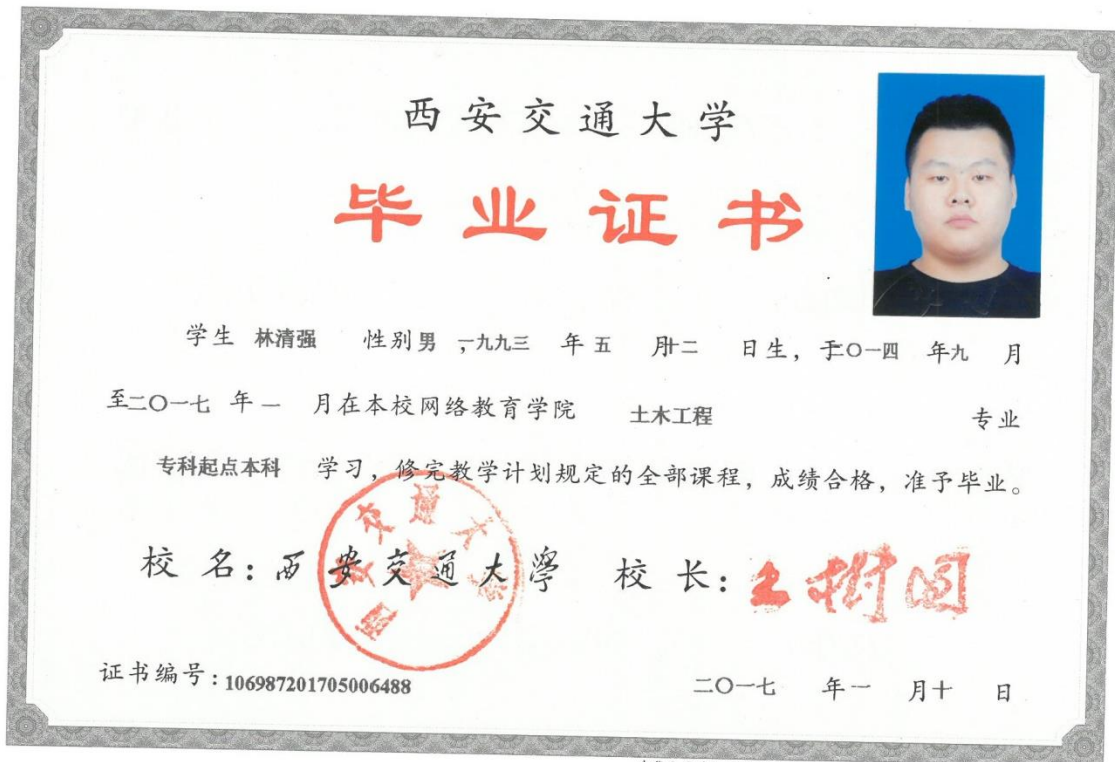 西安交通大学
毕业证书
学生 林清强 性别 男 ,一九九三 年 五 月十二 日生，于二〇一四 年九 月
至二〇一七 年 一 月在本校网络教育学院 土木工程 专业
专科起点本科 学习，修完教学计划规定的全部课程，成绩合格，准予毕业。
校 名：西安交通大學 校 长：王树国
西安交通大学
证书编号：106987201705006488 二〇一七 年一 月十 日